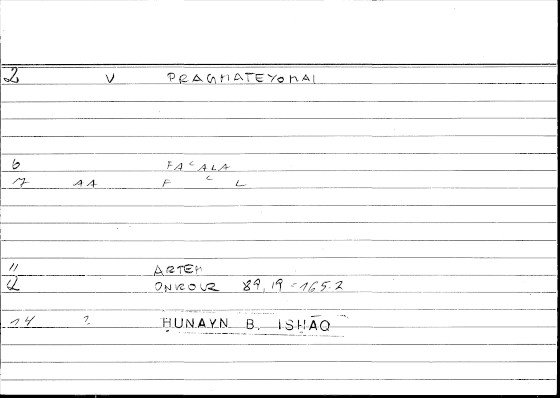 2 V PRAGMATEYOMAI
6 FAᶜALA
7 AA F ᶜ L
11 ARTEM
12 ONIROCR 89,19 = 165.2
14 ? ḤUNAYN B. ISḤĀQ